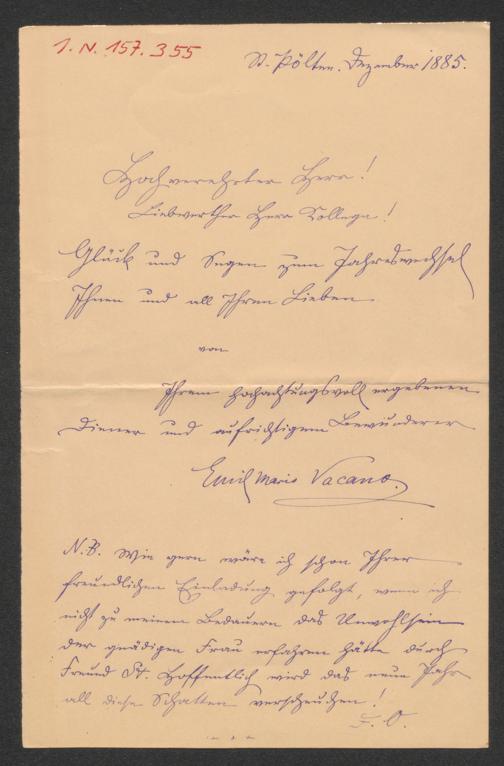 I. N. 157.355
St. Pölten. Dezember 1885.
Hochverehrter Herr!
Liebwerther Herr Collega!
Glück und Segen zum Jahreswechsel
Ihnen und all Ihren Lieben
von
Ihrem hochachtungsvoll ergebenen
Diener und aufrichtigem Bewunderer
Emil Mario Vacano.
N.B. Wie gern wäre ich schon Ihrer
freundlichen Einladung gefolgt, wenn ich
nicht zu meinem Bedauern das Unwohlsein
der gnädigen Frau erfahren hätte durch
Freund St. Hoffentlich wird das neue Jahr
all diese Schatten verscheuchen!